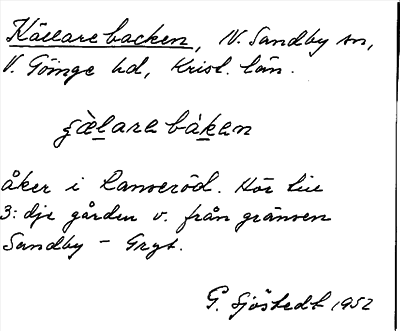 Källarebacken, N. Sandby sn,
V. Göinge hd, Krist. län.
åker i Lanseröd. Hör till
3:dje gården v. från gränsen
Sandby - Gryt.
G. Sjöstedt 1952